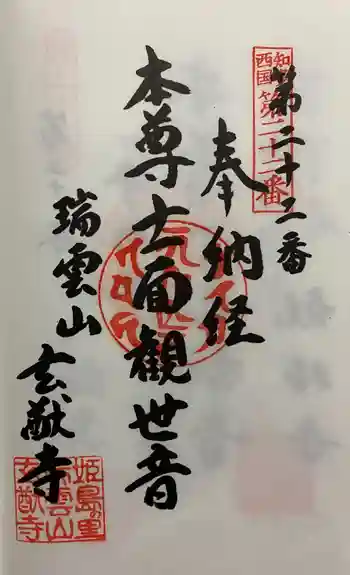 知多西国第二十二番
第二十二番
奉納経
本尊十一面観世音
瑞雲山
玄猷寺
姫島の里
瑞雲山
玄猷寺